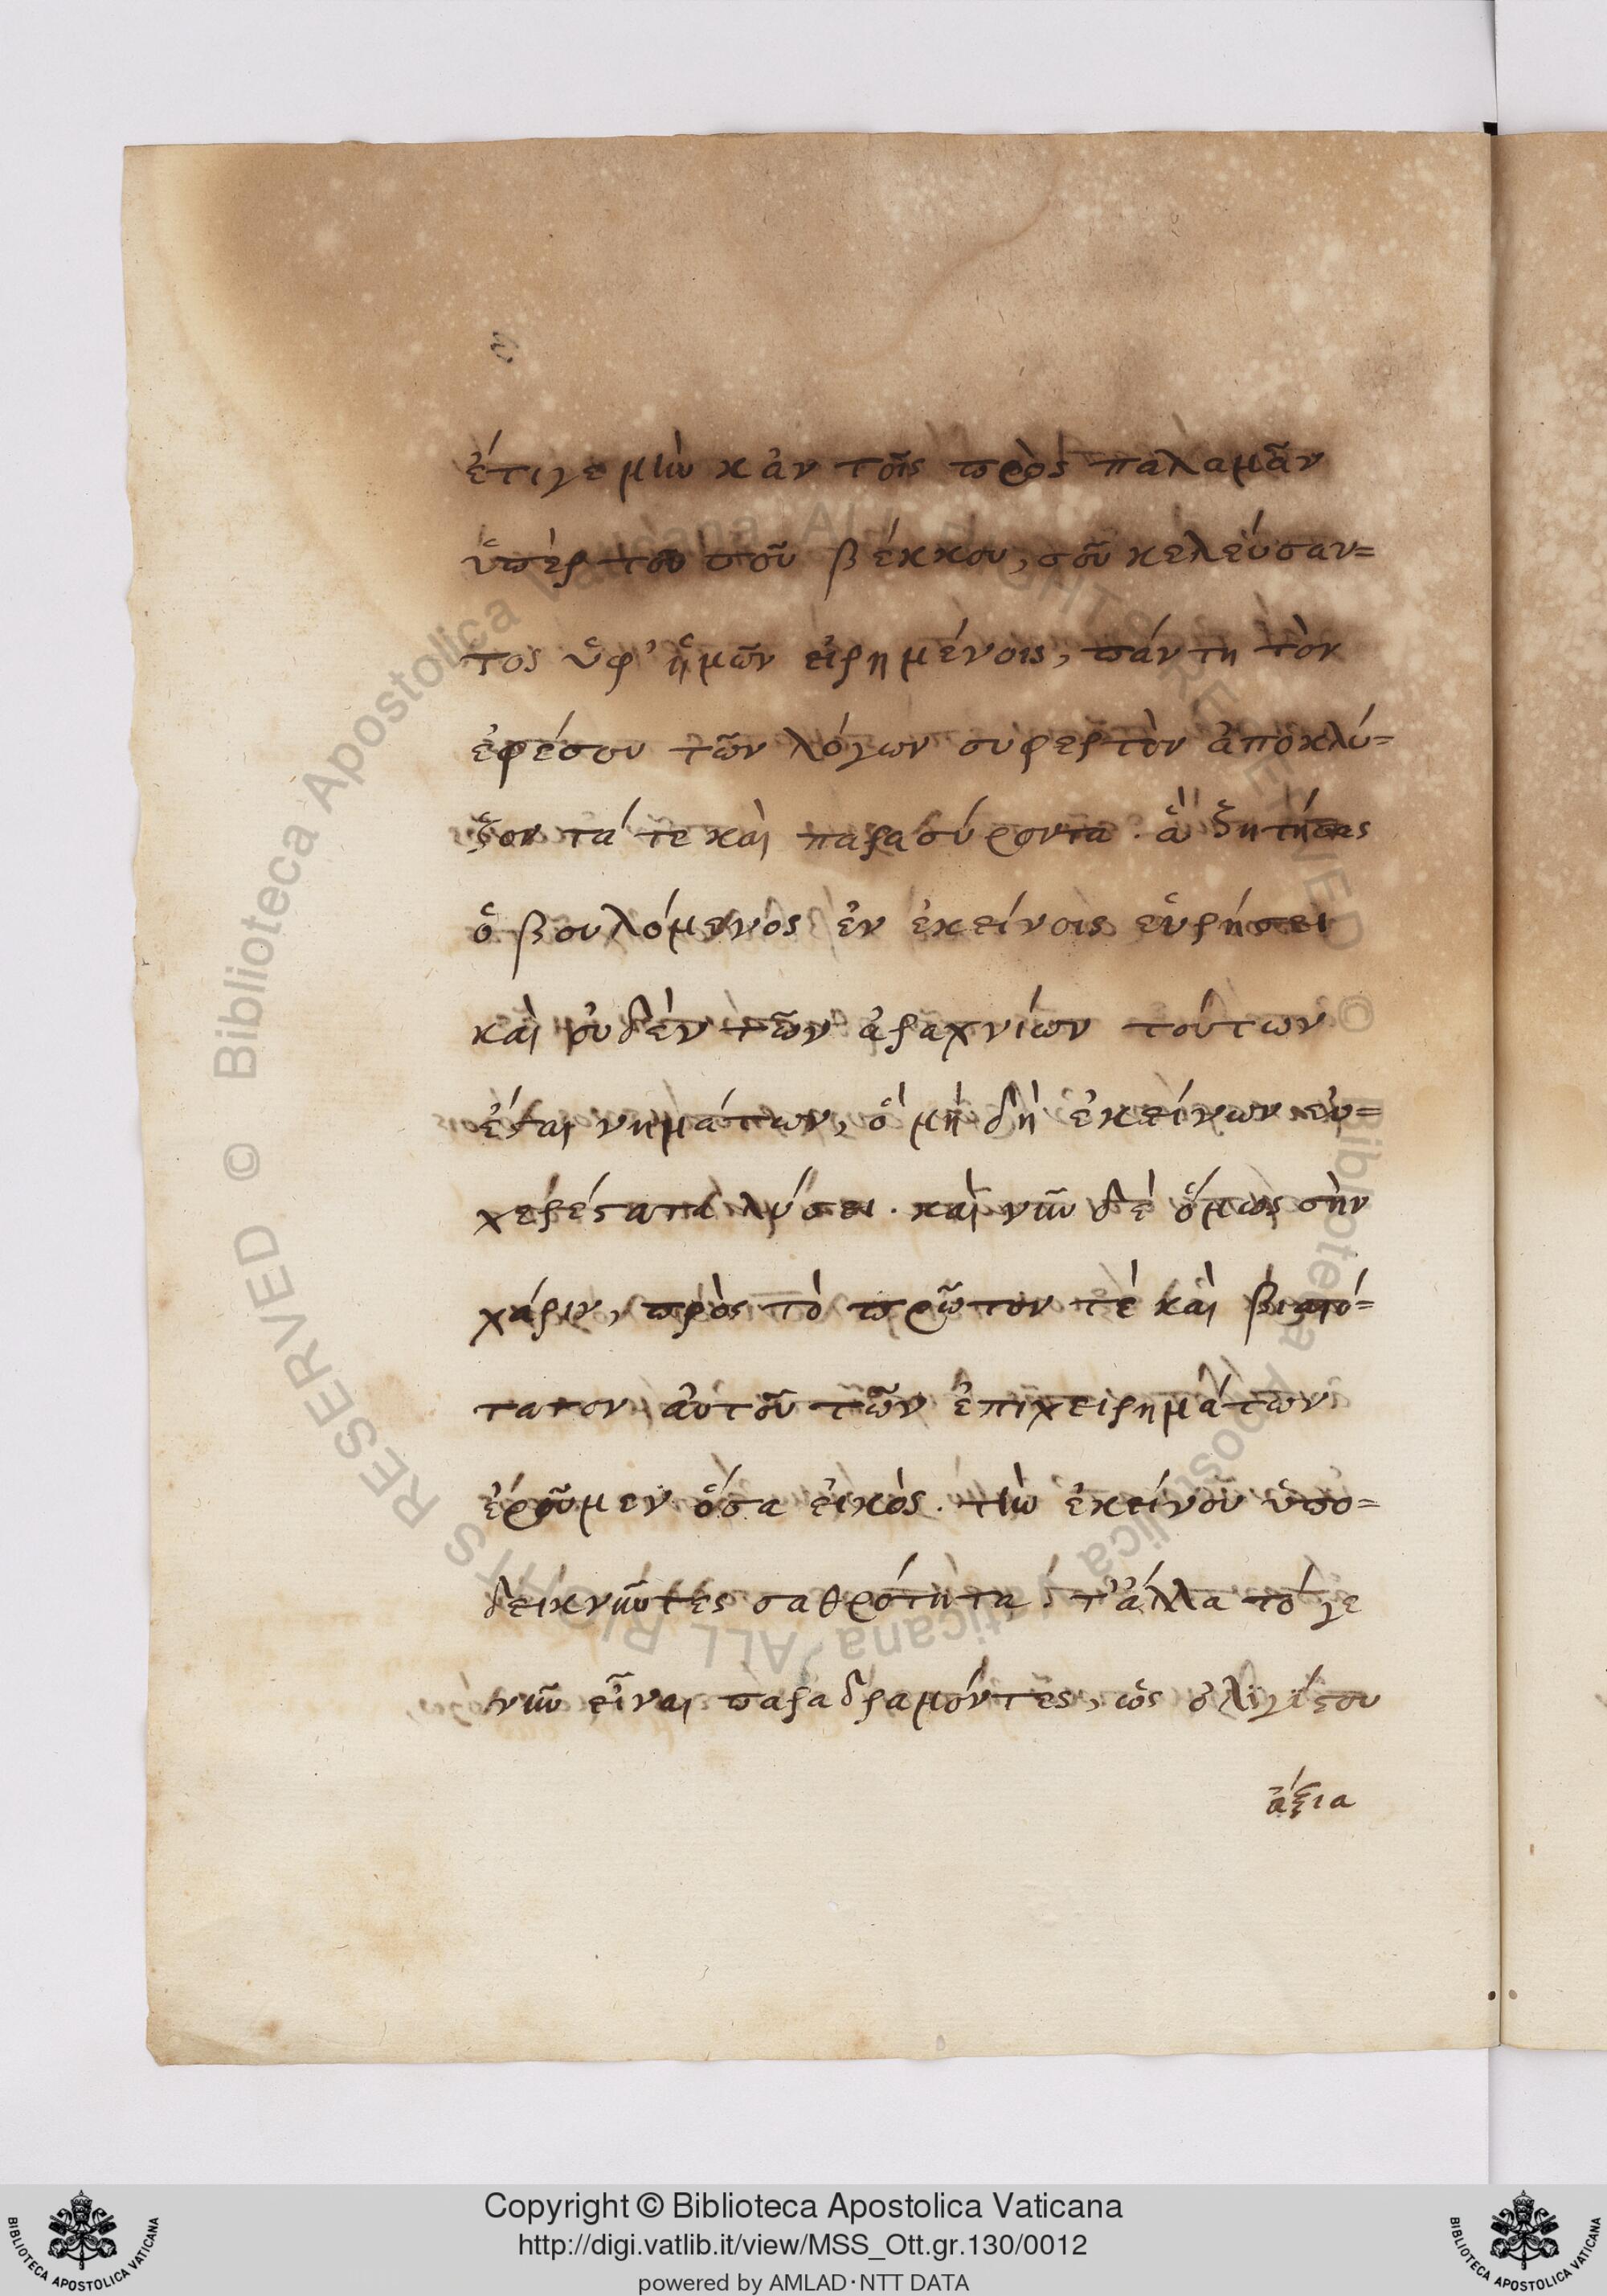 ἔτι γε μὴν κἀν τοῖς πρὸς παλαμᾶν
ὑπὲρ τοῦ σοῦ βέκκου, σοῦ κελεύσαν=
τος ὑφ' ἡμῶν εἰρημένοις, πάντη τὸν
ἐφέσου τῶν λόγων συρφετὸν ἀποκλύ=
ζοντά τε καὶ παρασύροντα. ἃ ζητήσας
ὁ βουλόμενος ἐν ἐκείνοις εὑρήσει
καὶ οὐδὲν τῶν ἀραχνίων τούτων
ἔσται νημάτων, ὃ μὴ δι' ἐκείνων εὐ=
χερέστατα λύσει. καὶ νῦν δὲ ὅμως σὴν
χάριν, πρὸς τὸ πρῶτον τὲ καὶ βιαιό=
τατον αὐτοῦ τῶν ἐπιχειρημάτων
ἐροῦμεν ὅσα εἰκὸς. τὴν ἐκείνου ὑπο=
δεικνῦντες σαθρότητα. τἆλλα τό γε
νῦν εἶναι παραδραμόντες, ὡς ὀλιγίστου
ἄξια
Copyright © Biblioteca Apostolica Vaticana
http://digi.vatlib.it/view/MSS_Ott.gr.130/0012
powered by AMLAD·NTT DATA
BIBLIOTECA APOSTOLICA VATICANA
BIBLIOTECA APOSTOLICA VATICANA
© Biblioteca Apostolica Vaticana ALL RIGHTS RESERVED © Biblioteca Apostolica Vaticana ALL RIGHTS RESERVED